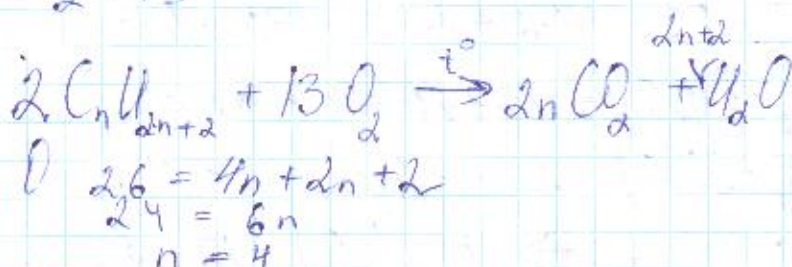 2 CₙH₂ₙ₊₂ + 13 O₂ —t°→ 2n CO₂ + 2n+2 H₂O
O 26 = 4n + 2n + 2
24 = 6n
n = 4